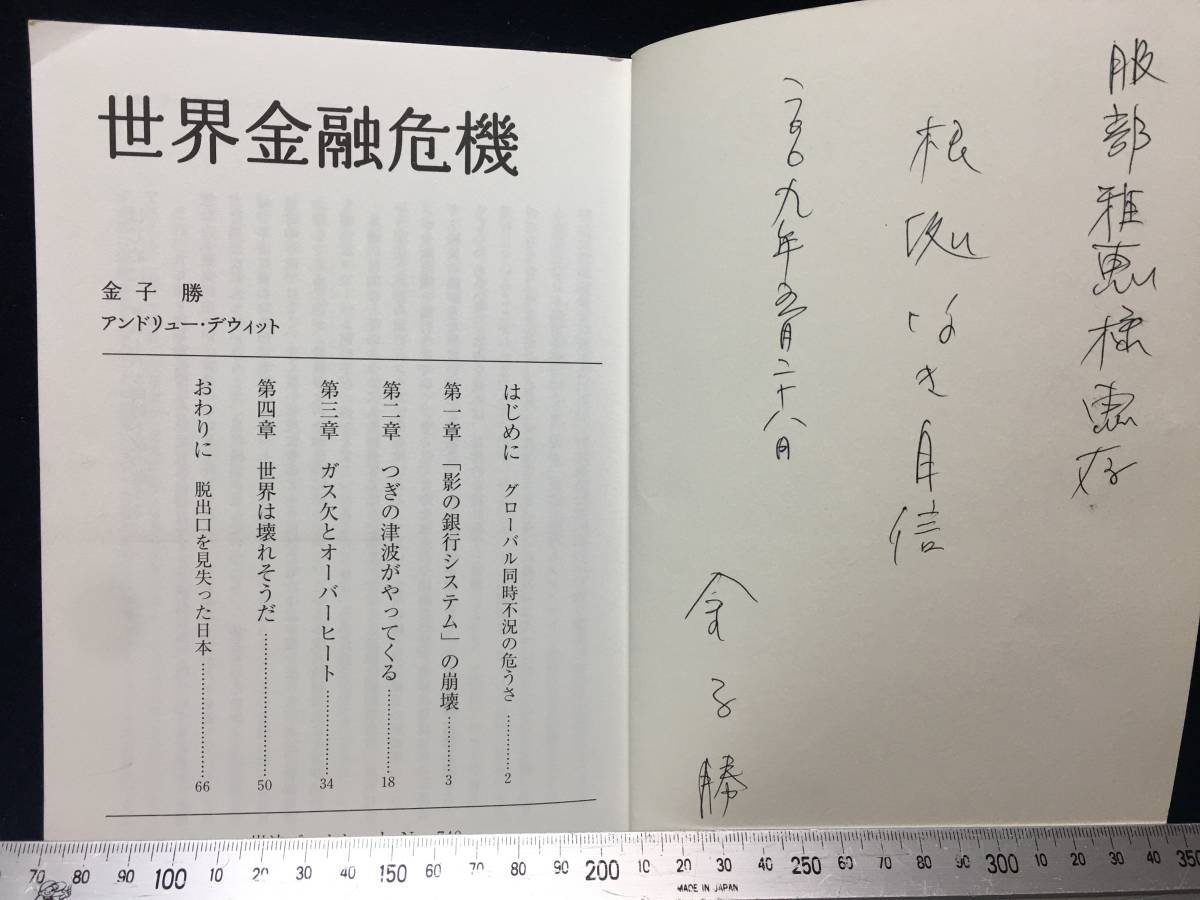 服部雅恵様恵存
根拠なき自信
二〇〇九年五月二十八日
金子勝
世界金融危機
金子 勝
アンドリュー・デウィット
はじめに グローバル同時不況の危うさ …………2
第一章 「影の銀行システム」の崩壊…………3
第二章 つぎの津波がやってくる…………………18
第三章 ガス欠とオーバーヒート…………………34
第四章 世界は壊れそうだ…………………………50
おわりに 脱出口を見失った日本…………………66
70 80 90 100 10 20 30 40 150 60 70 80 90 200 10 20 30 40 250 60 70 80 90 300 10 20 30 40 350
MADE IN JAPAN